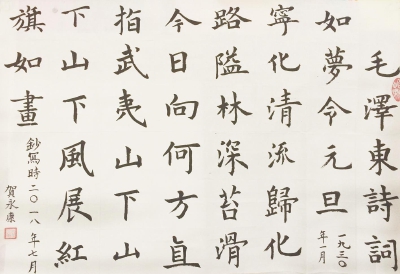 毛澤東詩詞
如夢令元旦
一九三〇
年一月
寧化清流歸化
路隘林深苔滑
今日向何方直
指武夷山下山
下山下風展紅
旗如畫
鈔寫時二〇一八年七月
賀永康